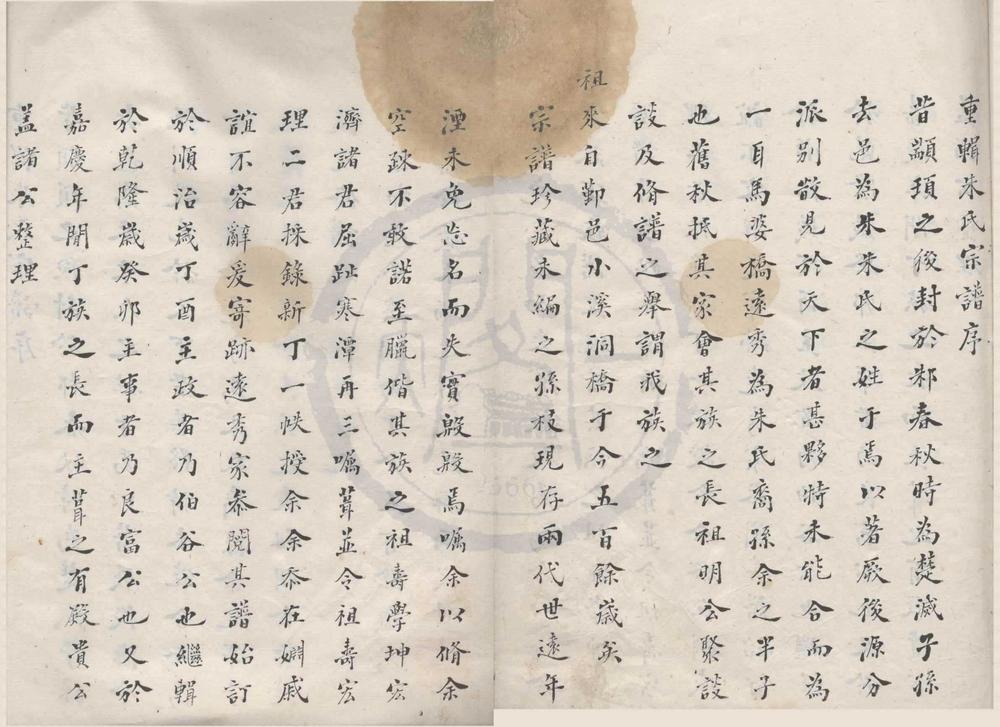 重輯朱氏宗譜序
昔顓頊之後封於邾春秋時為楚滅子孫
去邑為朱朱氏之姓于焉以著厥後源分
派別散見於天下者甚夥特未能合而為
一耳馬婆橋遠秀為朱氏裔孫余之半子
也舊秋抵其家會其族之長祖明公聚談
談及脩譜之舉謂我族之
祖來自鄞邑小溪洞橋于今五百餘歲矣
宗譜珍藏未編之孫枝現存兩代世遠年
湮未免忘名而失實殷殷焉囑余以脩余
空疎不敢諾至臘偕其族之祖壽學坤宏
濟諸君屈趾寒潭再三囑葺並令祖壽宏
理二君採錄新丁一帙授余余忝在婣戚
誼不容辭爰寄跡遠秀家叅閱其譜始訂
於順治歲丁酉主政者乃伯谷公也繼輯
於乾隆歲癸卯主事者乃良富公也又於
嘉慶年閒丁族之長而主葺之有殿貴公
葢諸公整理